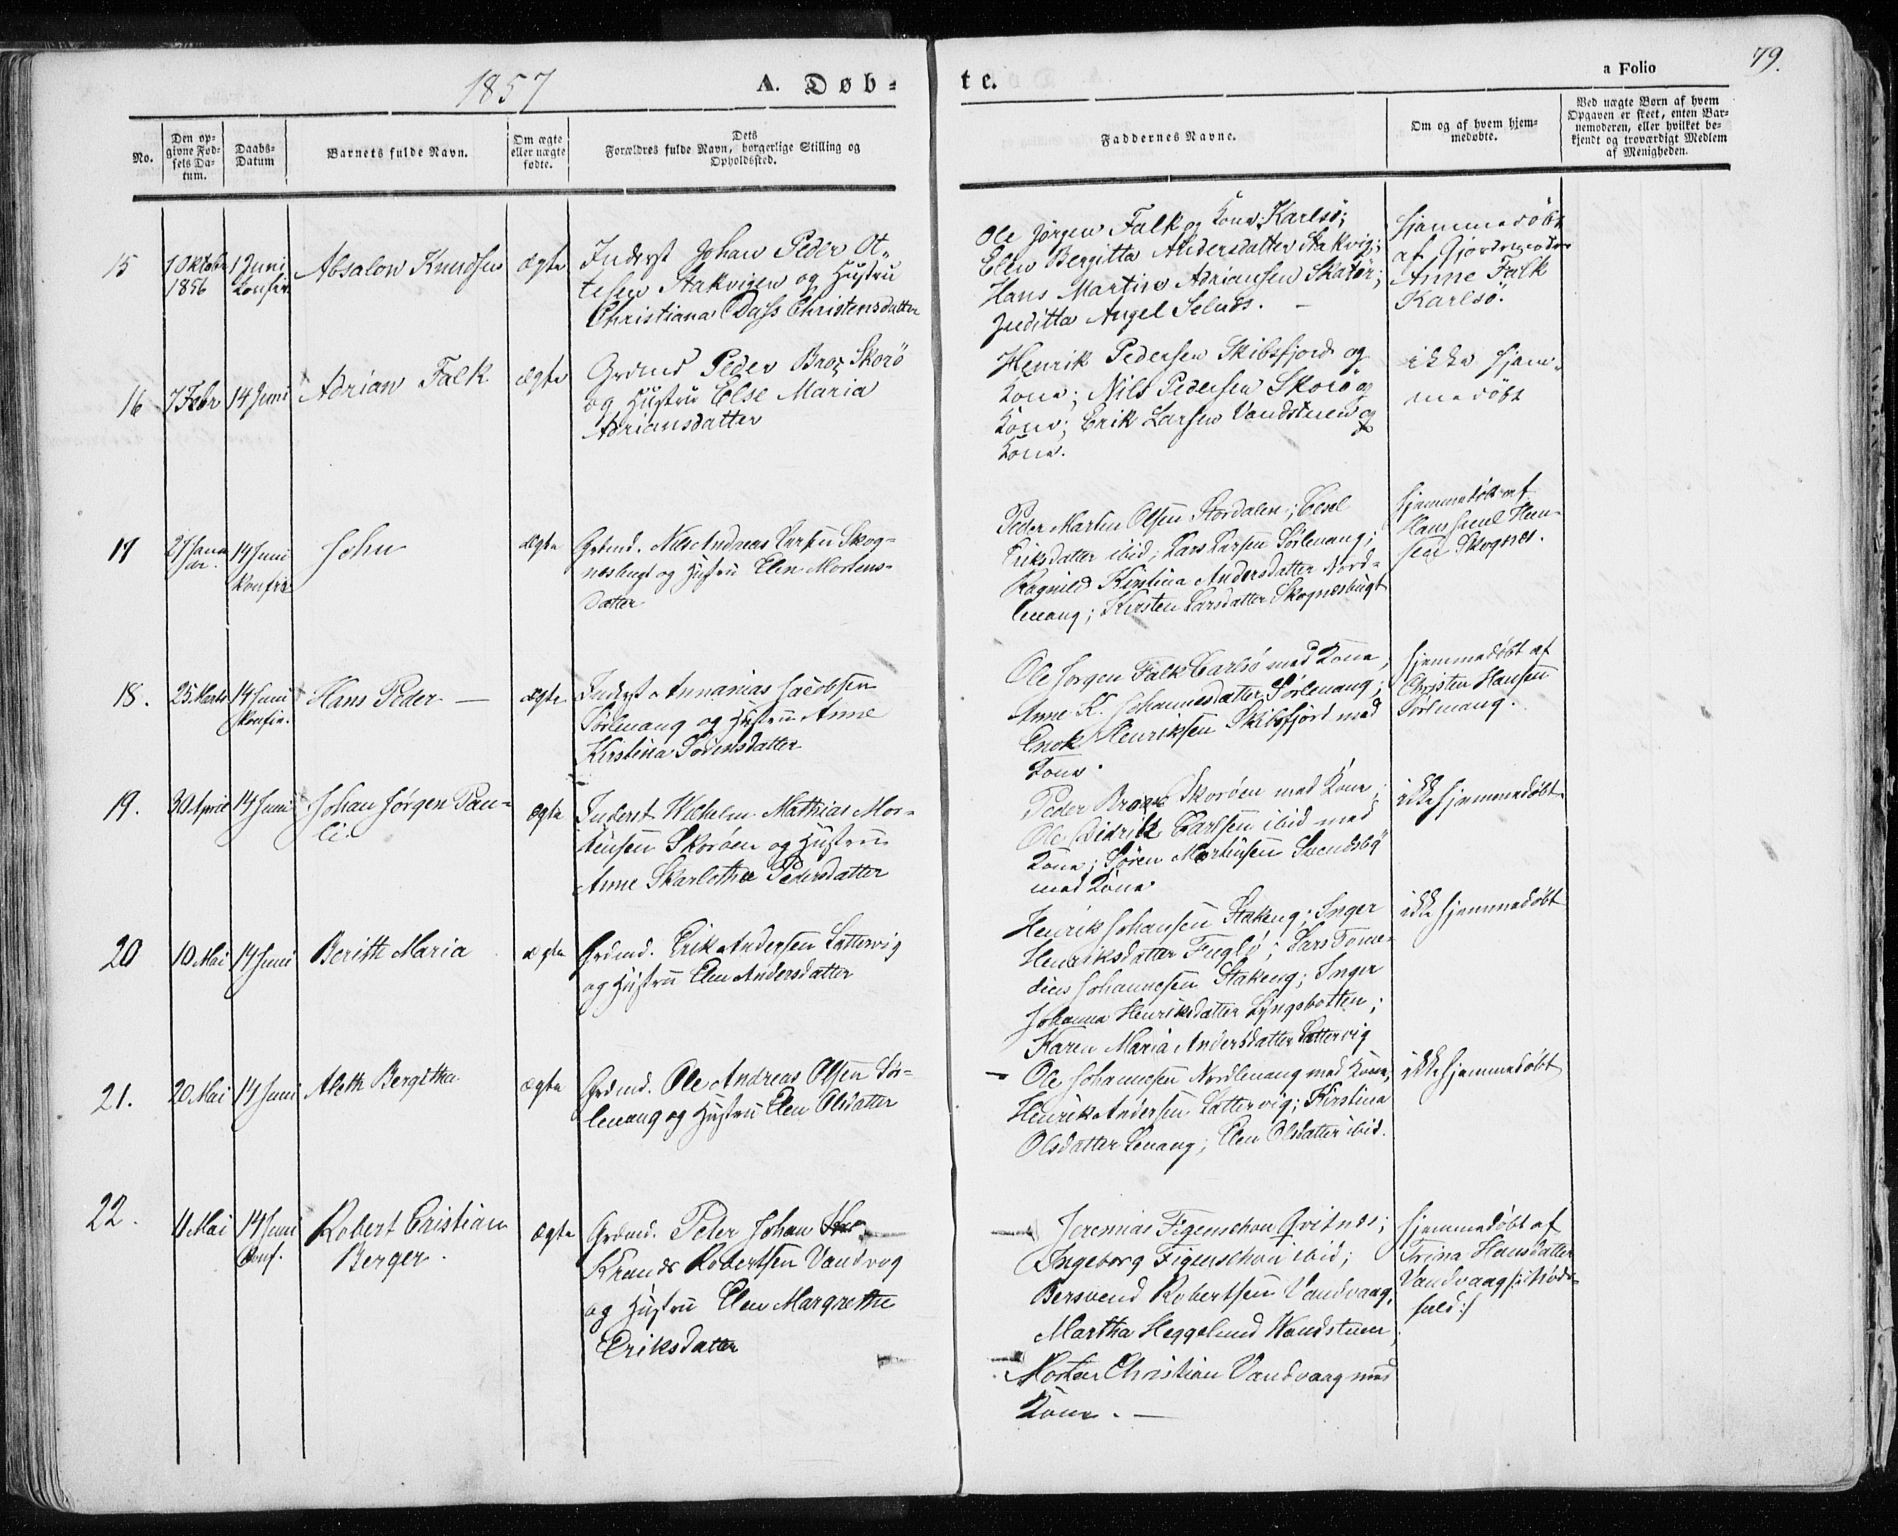 1857
A. Døb-
te.
a Folio
79.
No.
Den op-
givne Fød-
sels Da-
tum.
Daabs-
Datum
Barnets fulde Navn.
Om ægte
eller uægte
fødte.
Dets
Forældres fulde Navn, borgerlige Stilling og
Opholdssted.
Faddernes Navne.
Om og af hvem hjem-
medøbte.
Ved uægte Børn af hvem
Opgaven er skeet, enten Bar-
nemoderen, eller hvilket be-
kjendt og troværdigt Medlem
af Menigheden.
15
1 Oktobr
1856
1 Juni
Absalon Knudsen
ægte
Inderst Johan Peder Ot-
tesen Stakvigen og Hustru
Christiana Dass Christensdatter
Ole Jørgen Falk og Kone, Karlsö;
Elen Bergitta Andersdatter Stakvig;
Hans Martin Adriansen Skatør;
Juditta Angel Selnes. –
Hjemmedöbt
af Gjordemoder
Anne Falk
Karlsö.
16
7 Febr
14 Juni
Adrian Falk
ægte
Grdmd Peder Brox Skorö
og Hustru Else Maria
Adriansdatter
Henrik Pedersen Skibsfjord og
Kone; Nils Pedersen Skorö og
Kone; Erik Larsen Vandstuen og
Kone.
ikke hjem-
medöbt
17
27 Janu
ar.
14 Juni
Konfir
John
ægte
Grdmd. Nils Andreas Larsen Skog-
nesbugt og Hustru Elen Mortens-
datter
Peder Martin Olsen Stordalen;
Eriksdatter ibid; Lars Larsen Sørlenang;
Ragnild Kirstina Andersdatter Nord-
lenang; Kirsten Larsdatter Skognesbugt
Hjemmedøbt af
Hans
Skognes.
18.
25 Marts
14 Juni
Konfir.
Hans Peder –
ægte
Inderst Annanias Jacobsen
Sørlenang og Hustru Anne
Kirstina Sørensdatter
Ole Jørgen Falk Carlsö med Kone,
Anne K. Johannesdatter Sørlenang;
Enok Henriksen Skibsfjord med
Kone.
Hjemmedøbt af
Christen Hansen
Sørlenang.
19.
30 April
14 Juni
Johan Jørgen Pau-
li.
ægte
Inderst Wilhelm Mathias Mor-
tensen Skoröen og Hustru
Anne Skarlotha Pedersdatter
Peder Brox Skoröen med Kone;
Ole Didrik Carlsen ibid med
Kone; Søren Mortensen Svendsby
med Kone
ikke hjemmedøbt
20
10 Mai
14 Juni
Berith Maria
ægte
Grdmd. Erik Andersen Lattervig
og Hustru Elen Andersdatter
Henrik Johansen Stakeng; Inger
Henriksdatter Fuglö; Lars Tome-
dius Johannesen Stakeng; Inger
Johanna Henriksdatter Lyngsbotten;
Karen Maria Andersdatter Lattervig
ikke hjemmedøbt
21.
20 Mai
14 Juni
Aleth Bergitha
ægte
Grdmd. Ole Andreas Olsen Sør-
lenang og Hustru Elen Olsdatter
Ole Johannesen Nordlenang med Kone,
Henrik Andersen Lattervig; Kirstina
Olsdatter Lenang; Elen Olsdatter ibid.
ikke hjemmedøbt
22.
4 Mai
14 Juni
Conf.
Robert Cristian
Berger.
ægte
Grdmd. Peter Johan
Robertsen Vandvog
og Hustru Elen Margrethe
Eriksdatter
Jeremias Figenschou Qvitnes;
Ingeborg Figenschou ibid;
Bersvend Robertsen Vandvaag,
Martha Heggelund Wandstuen,
Morten Christian Vandvaag med
Kone. –
Hjemmedøbt af
Trina Hansdatter
Vandvaag /: i Nøds-
fald :/